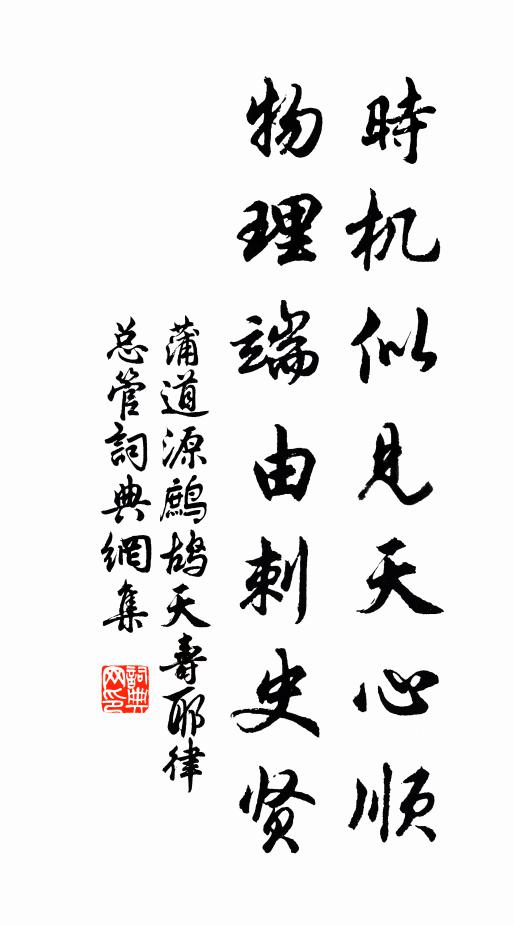 時机似見天心順
物理端由刺史贤
蒲道源鷓鴣天壽耶律
总管詞典網集
詞典網印